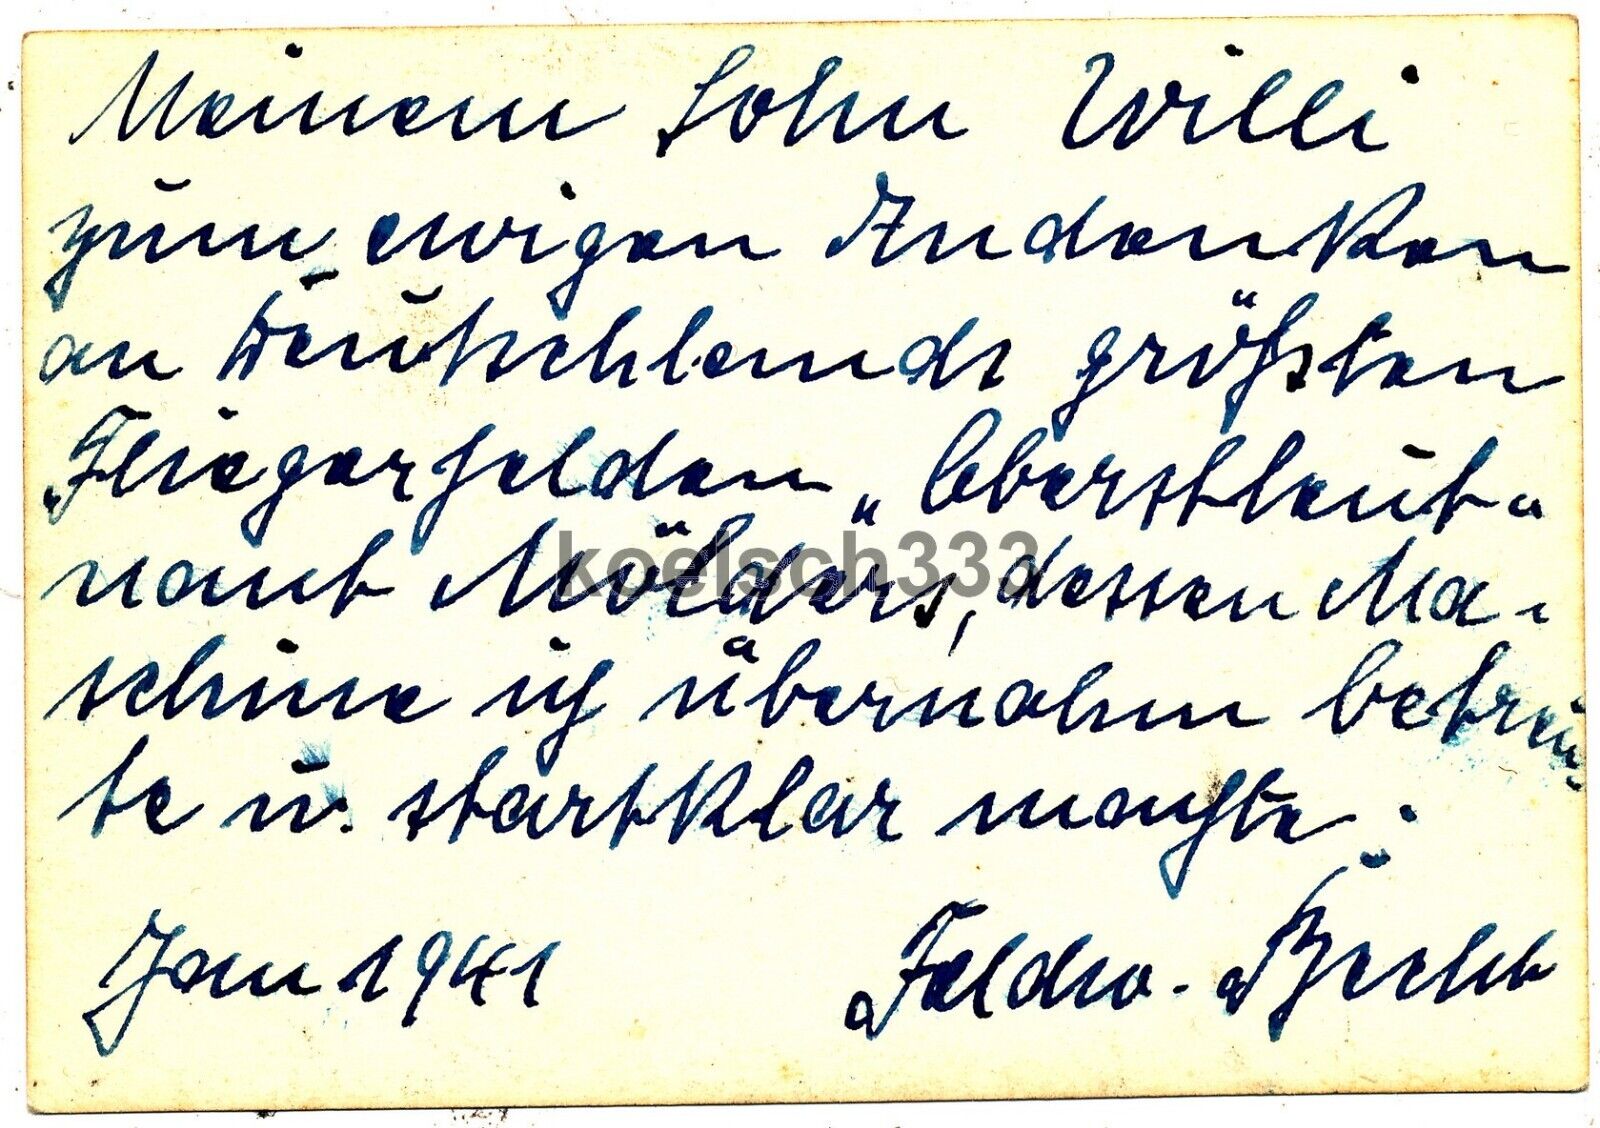 Meinem Sohn Willi
zum ewigen Andenken
an Deutschlands größten
Fliegerhelden „Oberstleut-
nant Mölders, dessen Ma-
koelsch333
schine ich übernahm betreu-
te u. startklar machte.
Jan 1941 Feldw.